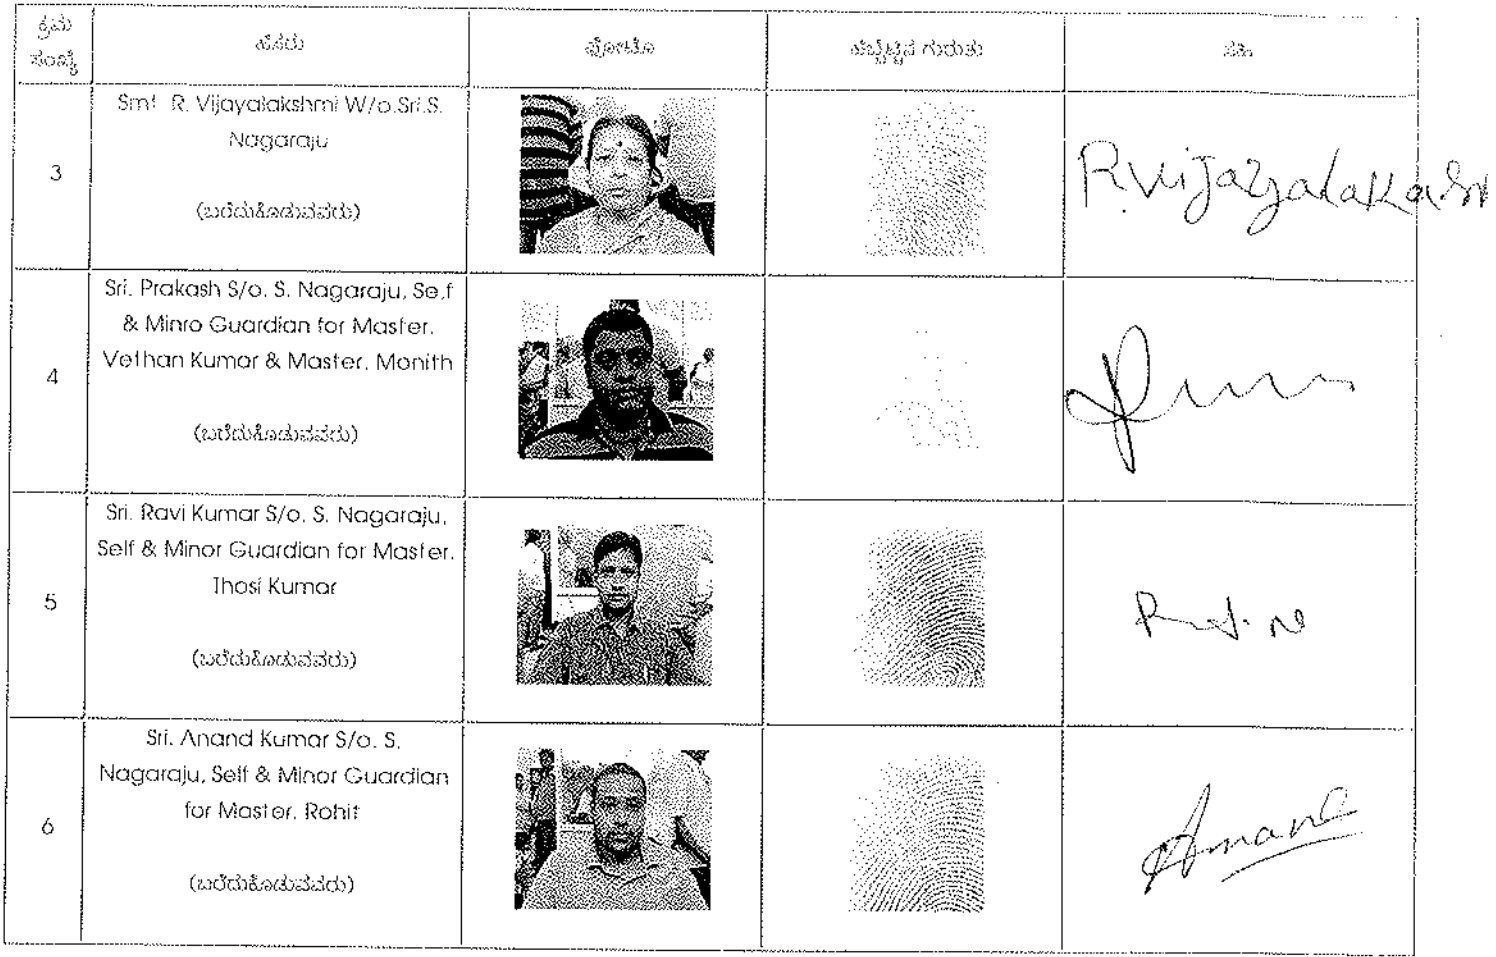 ಕ್ರಮ
ಸಂಖ್ಯೆ
ಹೆಸರು
ಫೋಟೊ
ಹೆಬ್ಬೆಟ್ಟಿನ ಗುರುತು
ಸಹಿ
3
Smt R. Vijayalakshmi W/o.Sri.S.
Nagaraju
(ಬರೆದುಕೊಡುವವರು)
R.Vijayalakash
4
Sri. Prakash S/o. S. Nagaraju, Se,f
& Minro Guardian for Master.
Vethan Kumar & Master. Monith
(ಬರೆದುಕೊಡುವವರು)
5
Sri. Ravi Kumar S/o. S. Nagaraju,
Self & Minor Guardian for Master.
Thosi Kumar
(ಬರೆದುಕೊಡುವವರು)
6
Sri. Anand Kumar S/o. S.
Nagaraju, Self & Minor Guardian
for Master. Rohit
(ಬರೆದುಕೊಡುವವರು)
Anand